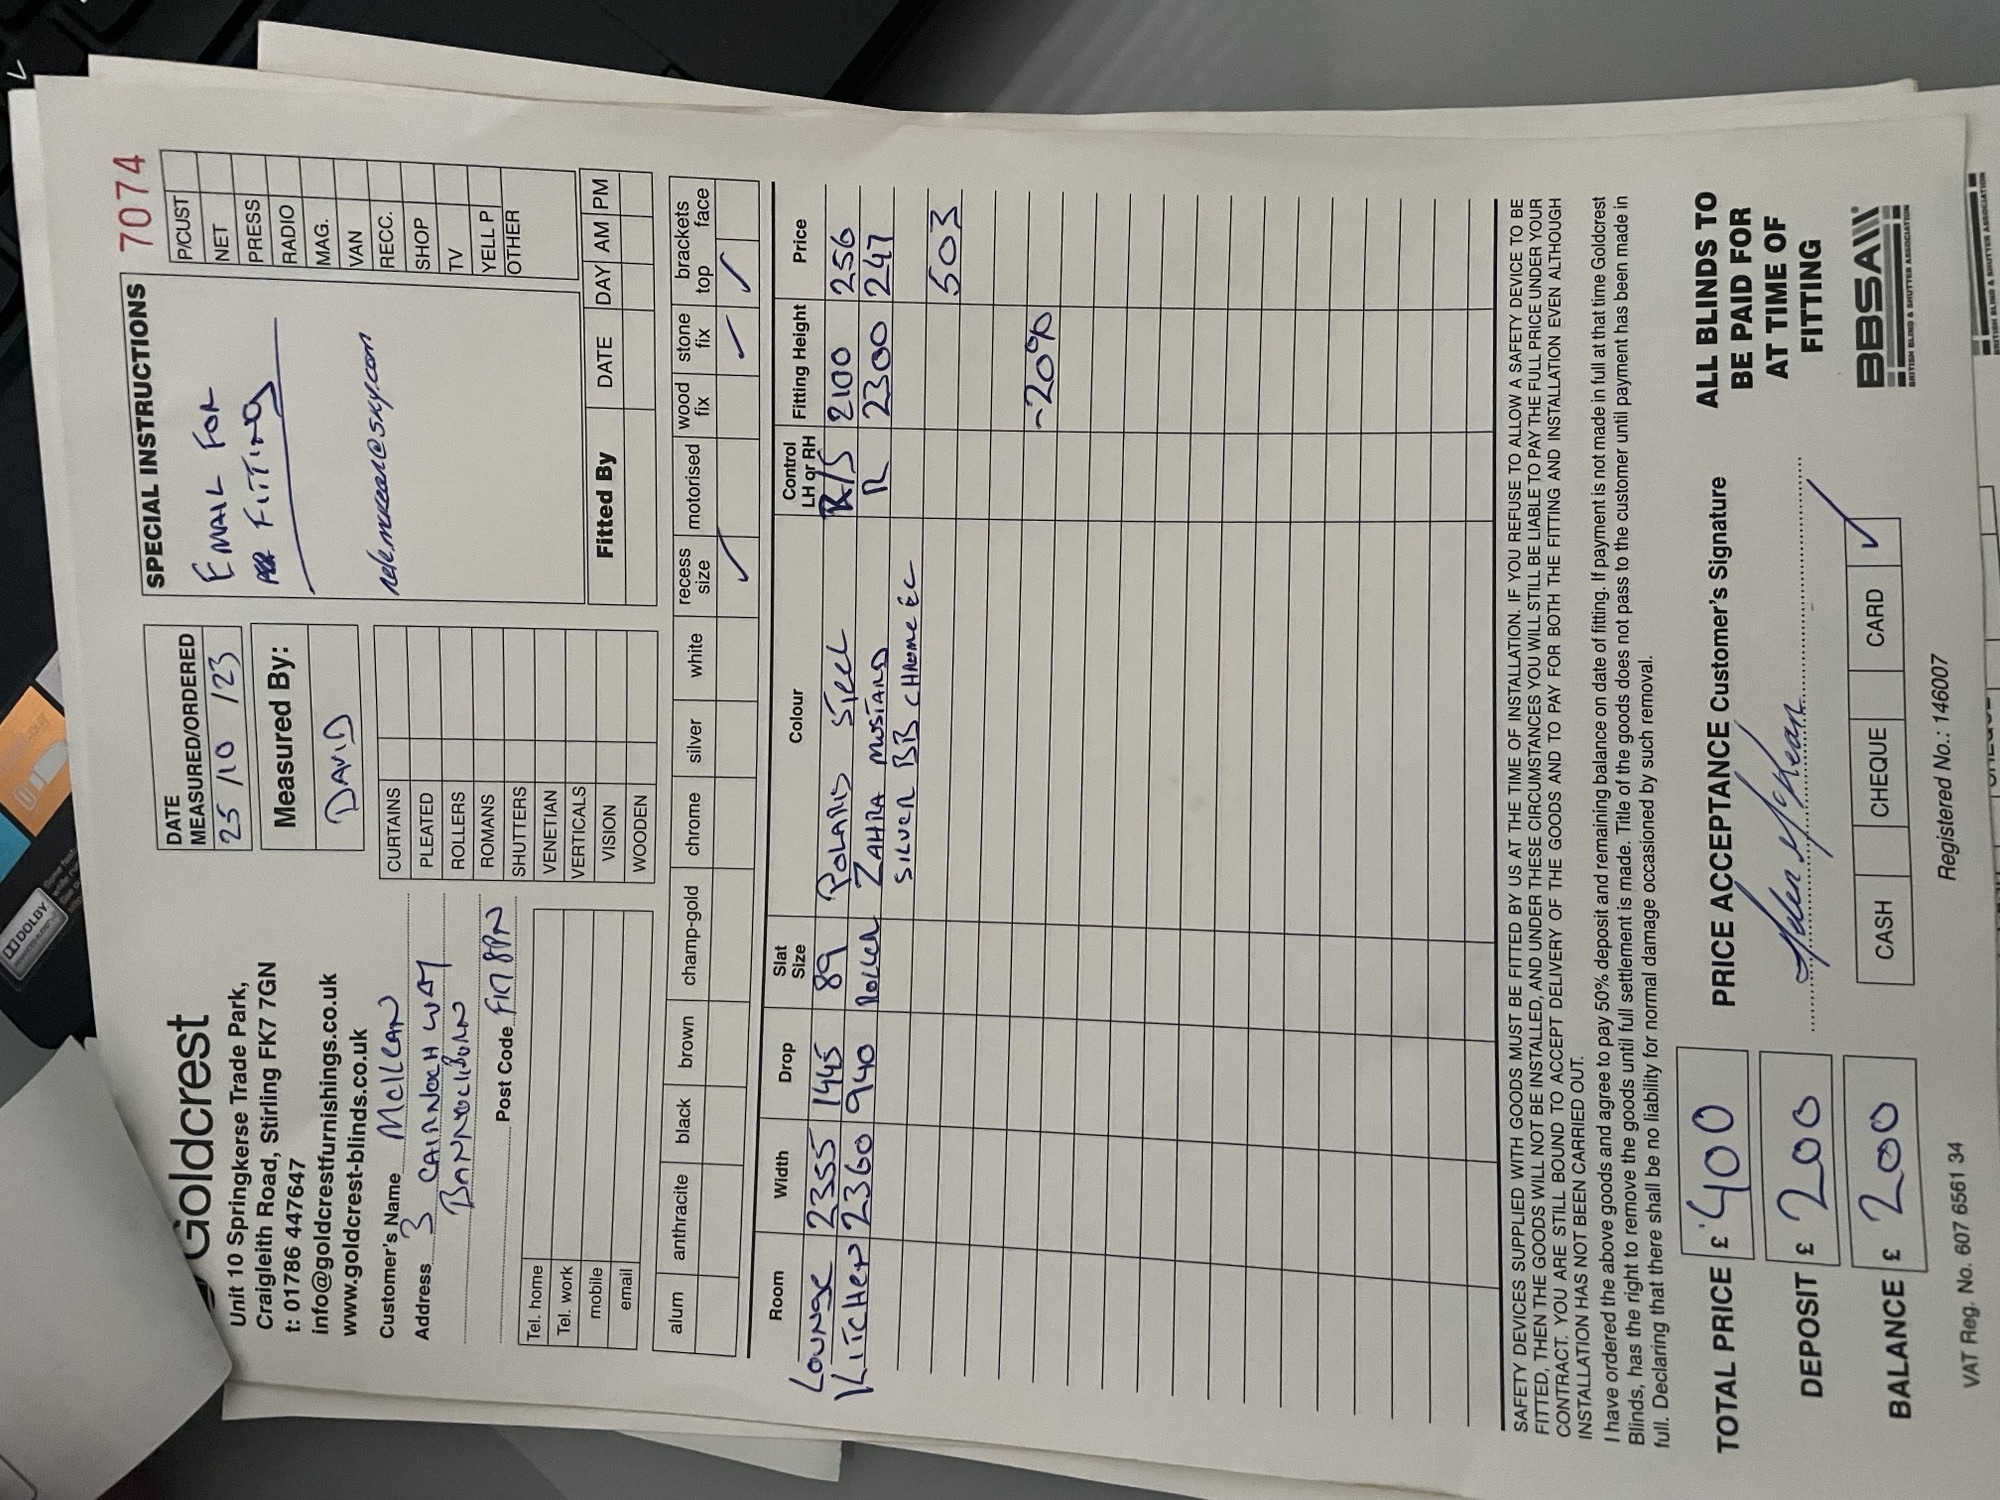 7074
Goldcrest
Unit 10 Springkerse Trade Park,
Craigleith Road, Stirling FK7 7GN
t: 01786 447647
info@goldcrestfurnishings.co.uk
www.goldcrest-blinds.co.uk
Customer's Name McKEAN
Address 3 CAIRNOCH WAY
BANNOCKBURN
Post Code FK7 8PN
Tel. home
Tel. work
mobile
email
DATE
MEASURED/ORDERED
25/10/23
Measured By:
DAVID
CURTAINS
PLEATED
ROLLERS
ROMANS
SHUTTERS
VENETIAN
VERTICALS
VISION
WOODEN
SPECIAL INSTRUCTIONS
EMAIL FOR
FITTING
P/CUST
NET
PRESS
RADIO
MAG.
VAN
RECC.
SHOP
TV
YELL P
OTHER
Fitted By DATE DAY AM PM
alum anthracite black brown champ-gold chrome silver white recess size motorised wood fix stone fix brackets top face
✓ ✓ ✓
Room Width Drop Slat Size Colour Control LH or RH Fitting Height Price
LOUNGE 2355 1445 89 POLARIS STEEL R/S 2100 256
KITCHEN 2360 940 ROLLER ZAHRA MUSTARD R 2300 247
SILVER BB CHROME EC
503
-20%
SAFETY DEVICES SUPPLIED WITH GOODS MUST BE FITTED BY US AT THE TIME OF INSTALLATION. IF YOU REFUSE TO ALLOW A SAFETY DEVICE TO BE
FITTED, THEN THE GOODS WILL NOT BE INSTALLED, AND UNDER THESE CIRCUMSTANCES YOU WILL STILL BE LIABLE TO PAY THE FULL PRICE UNDER YOUR
CONTRACT. YOU ARE STILL BOUND TO ACCEPT DELIVERY OF THE GOODS AND TO PAY FOR BOTH THE FITTING AND INSTALLATION EVEN ALTHOUGH
INSTALLATION HAS NOT BEEN CARRIED OUT.
I have ordered the above goods and agree to pay 50% deposit and remaining balance on date of fitting. If payment is not made in full at that time Goldcrest
Blinds, has the right to remove the goods until full settlement is made. Title of the goods does not pass to the customer until payment has been made in
full. Declaring that there shall be no liability for normal damage occasioned by such removal.
TOTAL PRICE £ 400
DEPOSIT £ 200
BALANCE £ 200
PRICE ACCEPTANCE Customer's Signature
Helen McKean
CASH CHEQUE CARD ✓
ALL BLINDS TO
BE PAID FOR
AT TIME OF
FITTING
BBSA
BRITISH BLIND & SHUTTER ASSOCIATION
VAT Reg. No. 607 6561 34
Registered No.: 146007
DOLBY